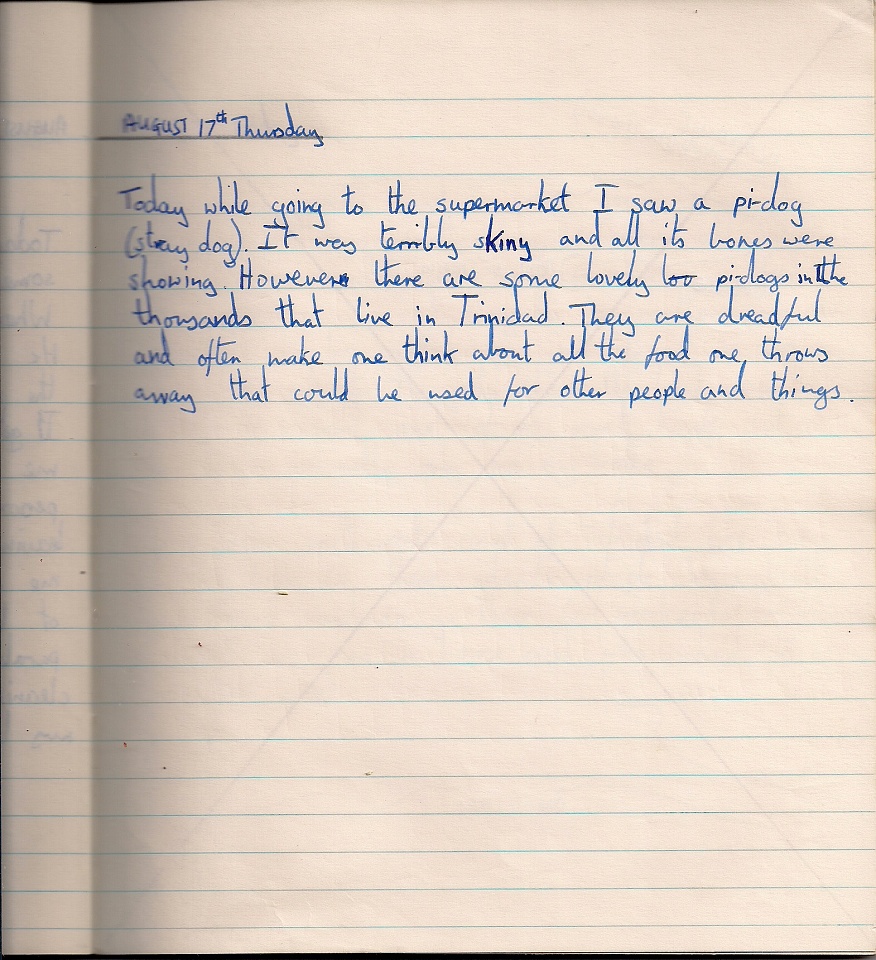 AUGUST 17th Thursday
Today while going to the supermarket I saw a pi-dog
(stray dog). It was terribly skiny and all its bones were
showing. However there are some lovely loo pi-dogs in the
thousands that live in Trinidad. They are dreadful
and often make one think about all the food one throws
away that could be used for other people and things.